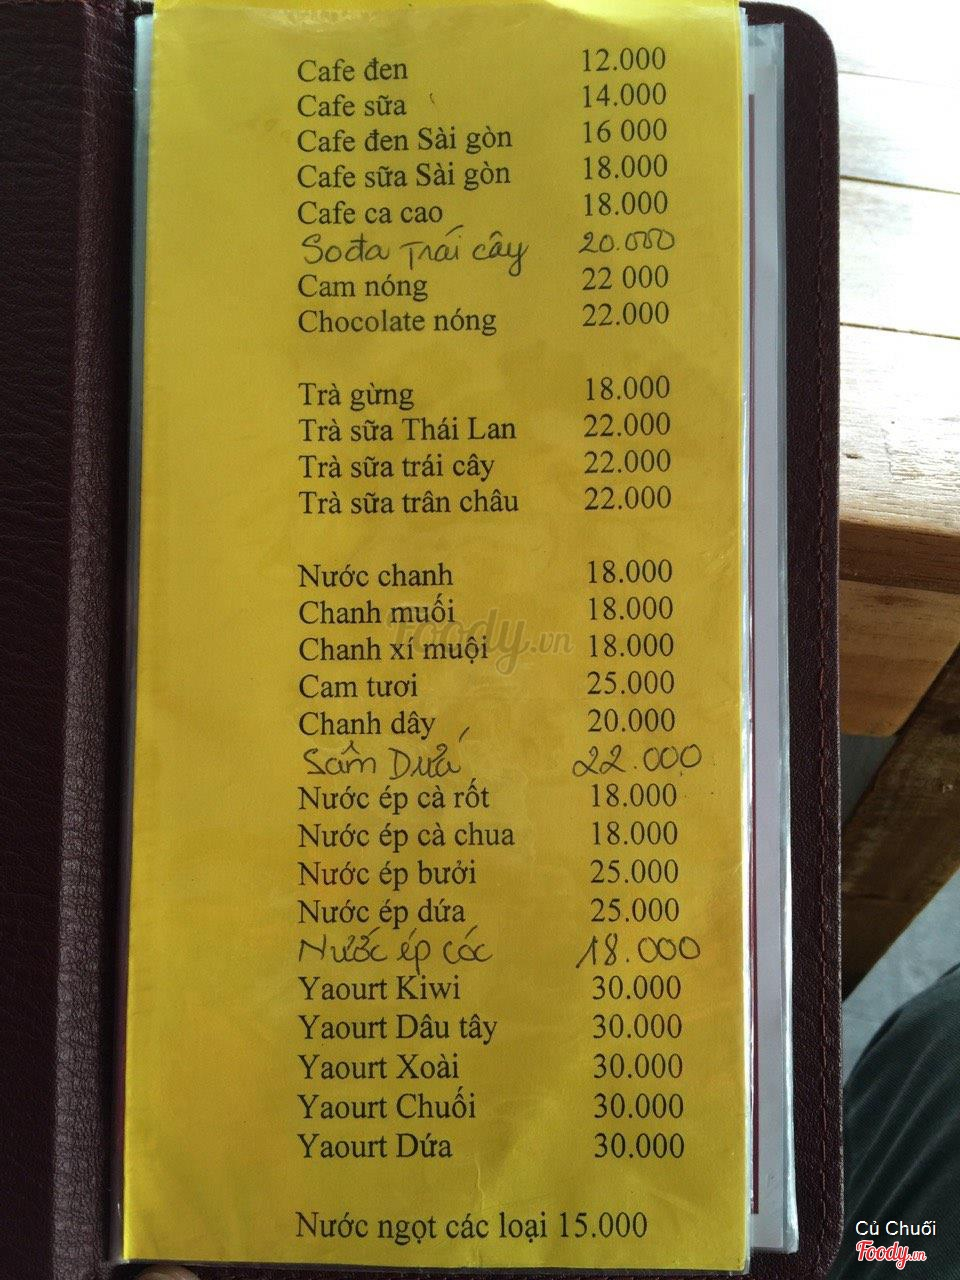 Cafe đen 12.000
Cafe sữa 14.000
Cafe đen Sài gòn 16 000
Cafe sữa Sài gòn 18.000
Cafe ca cao 18.000
Sođa Trái cây 20.000
Cam nóng 22 000
Chocolate nóng 22.000
Trà gừng 18.000
Trà sữa Thái Lan 22.000
Trà sữa trái cây 22.000
Trà sữa trân châu 22.000
Nước chanh 18.000
Chanh muối 18.000
Chanh xí muội 18.000
Cam tươi 25.000
Chanh dây 20.000
Sâm Dứa 22.000
Nước ép cà rốt 18.000
Nước ép cà chua 18.000
Nước ép bưởi 25.000
Nước ép dứa 25.000
Nước ép cóc 18.000
Yaourt Kiwi 30.000
Yaourt Dâu tây 30.000
Yaourt Xoài 30.000
Yaourt Chuối 30.000
Yaourt Dứa 30.000
Nước ngọt các loại 15.000
Foody.vn
Củ Chuối
Foody.vn